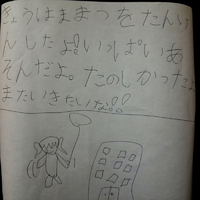 きょうはままつをたんけ
んしたよ!いっぱいあ
そんだよ。たのしかったよ
またいきたいな!!